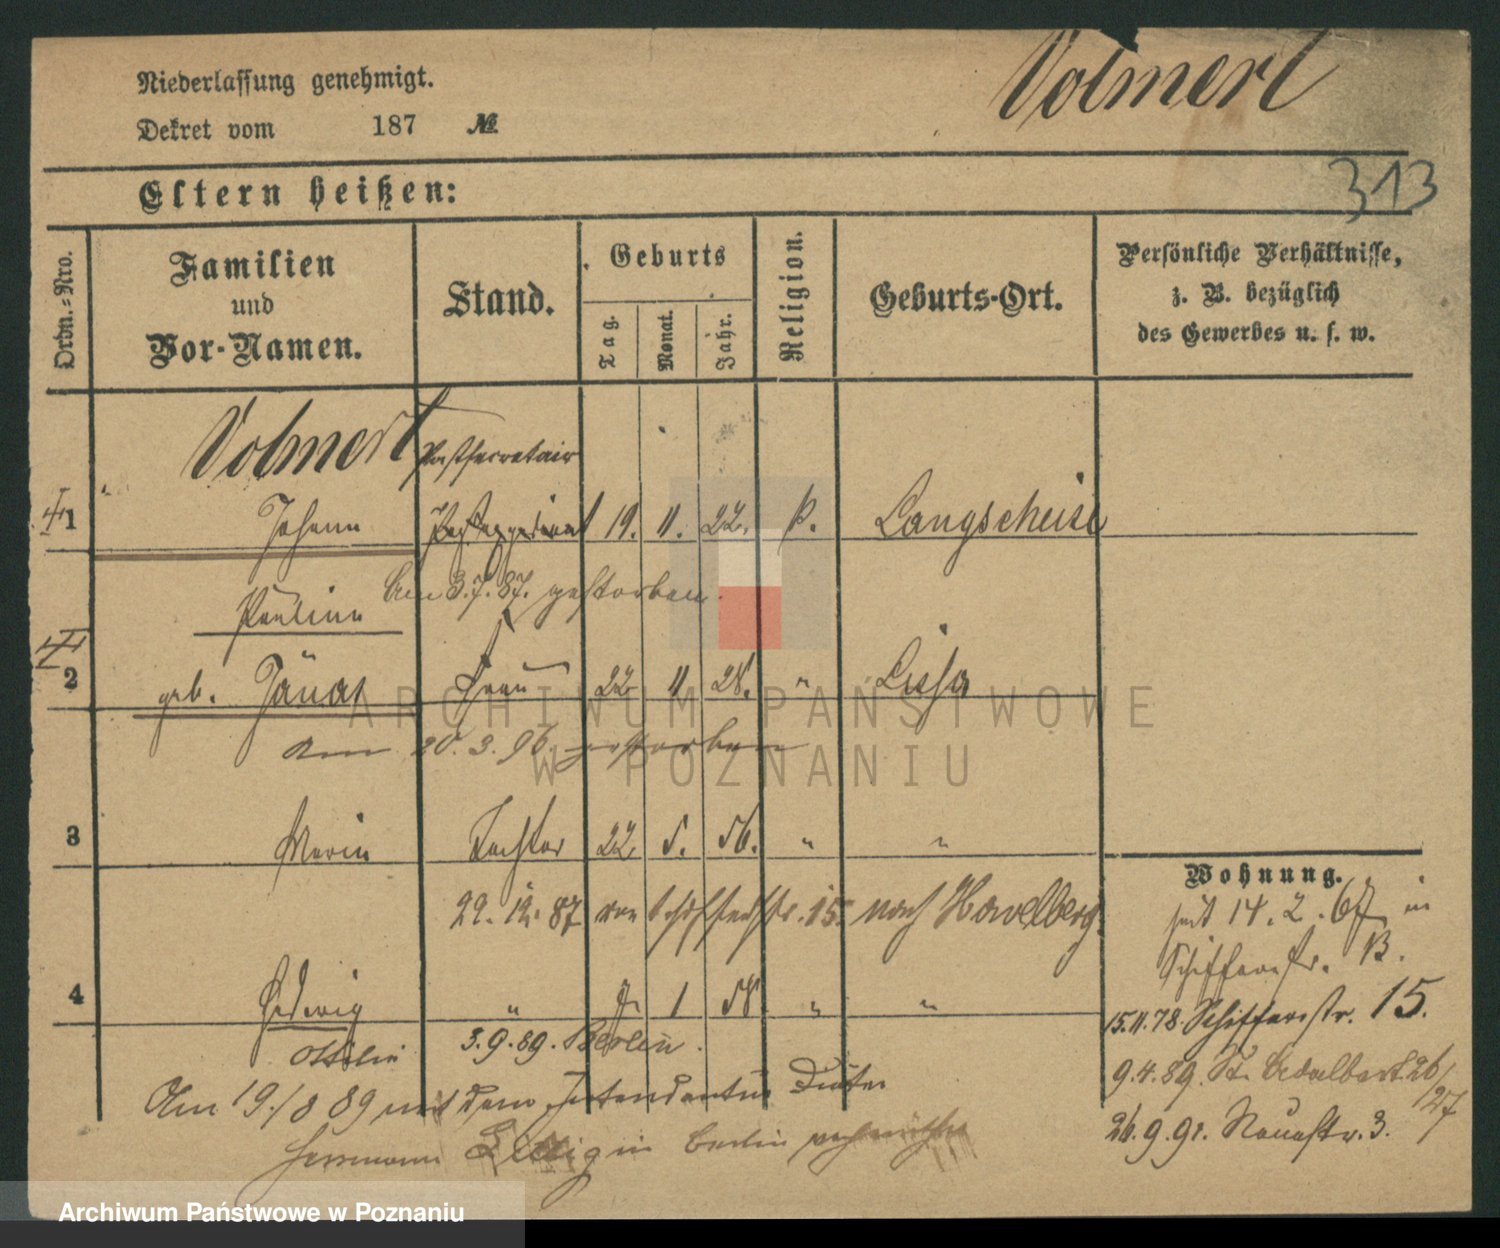 Niederlassung genehmigt.
Volmert
Dekret vom 187 №
313
Eltern heißen:
Ordn.-Nro.
Familien und Vor-Namen.
Stand.
Geburts
Tag.
Monat.
Jahr.
Religion.
Geburts-Ort.
Persönliche Verhältnisse, z. B. bezüglich des Gewerbes u. s. w.
Volmert Postsecretair
1 Johann 19. 11. 22. Langscheise
Am 3.7.87. gestorben.
Pauline
2 geb. Frau 22 11 28. " Lissa
am 20.3.96. gestorben
3 Marie Tochter 22 5. 56. " "
Wohnung.
22. 12. 87 von 15 nach Havelberg.
seit 14. 2. 67 in
Schifferstr. 13.
4 Hedwig " 7. 1 58 " "
15.11.78 Schifferstr. 15.
Ottilie 3.9.89. Berlin.
9.4.89. St. Adalbert 26/27
Am 19/8 89 mit dem Intendantur
26.9.91. Neuestr. 3.
Herrmann in Berlin
ARCHIWUM PAŃSTWOWE
W POZNANIU
Archiwum Państwowe w Poznaniu